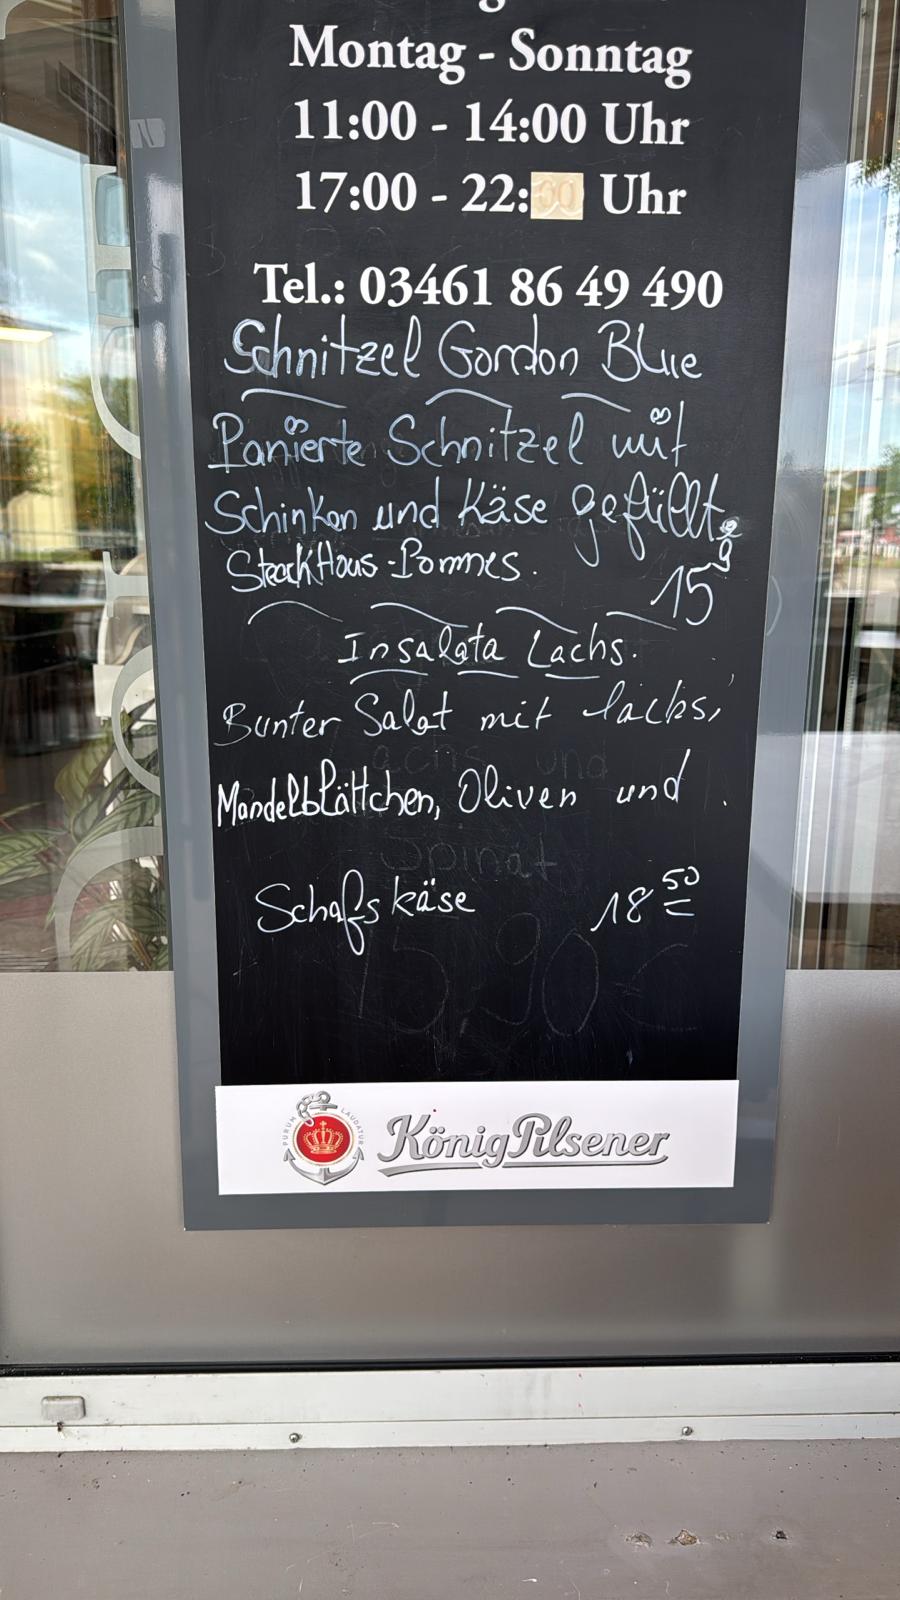 Montag - Sonntag
11:00 - 14:00 Uhr
17:00 - 22:00 Uhr
Tel.: 03461 86 49 490
Schnitzel Gordon Blue
Panierte Schnitzel mit
Schinken und Käse gefüllt,
SteackHaus-Pommes.
15
Insalata Lachs.
Bunter Salat mit lachs,
Mandelblättchen, Oliven und
Lachs und
Spinat
Schafskäse 18 50
15,90 €
PURUM LAUDATUR
König Pilsener